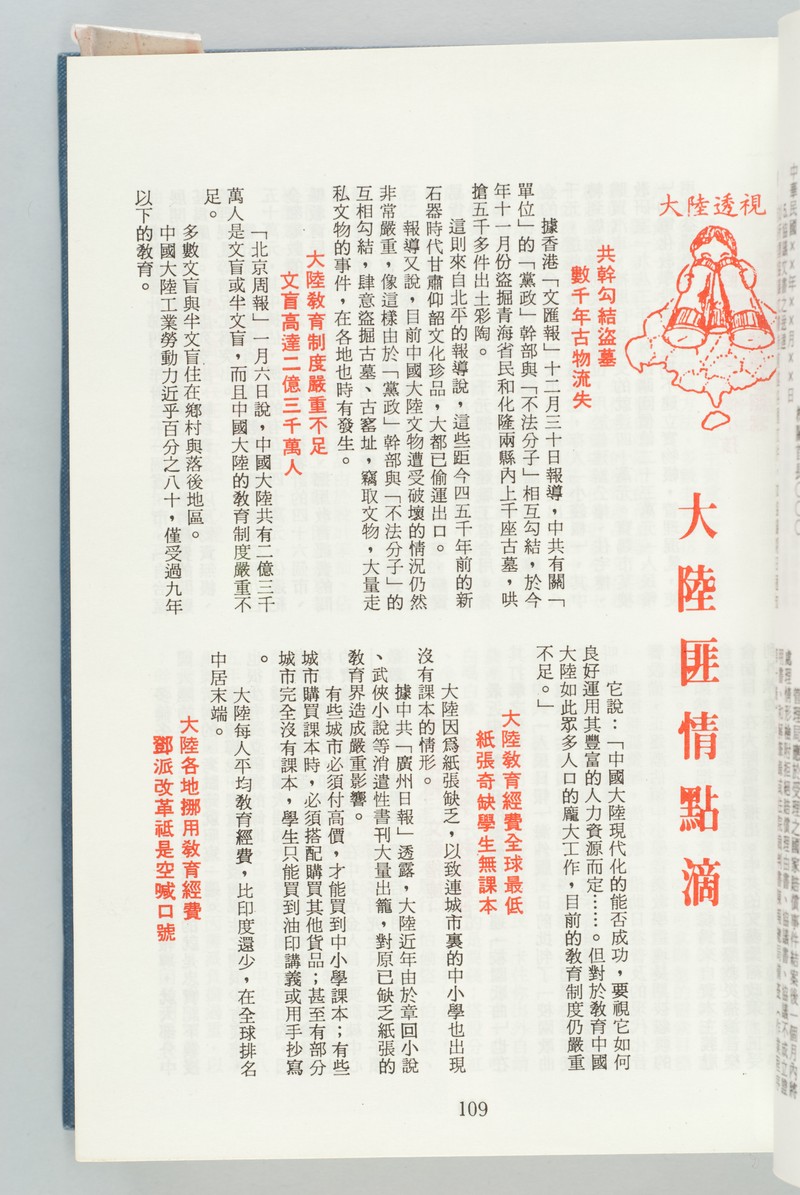 大陸透視
大陸匪情點滴
共幹勾結盜墓
數千年古物流失
據香港「文匯報」十二月三十日報導，中共有關「
單位」的「黨政」幹部與「不法分子」相互勾結，於今
年十一月份盜掘青海省民和化隆兩縣內上千座古墓，哄
搶五千多件出土彩陶。
這則來自北平的報導說，這些距今四五千年前的新
石器時代甘肅仰韶文化珍品，大都已偷運出口。
報導又說，目前中國大陸文物遭受破壞的情況仍然
非常嚴重，像這樣由於「黨政」幹部與「不法分子」的
互相勾結，肆意盜掘古墓、古窰址，竊取文物，大量走
私文物的事件，在各地也時有發生。
大陸教育制度嚴重不足
文盲高達二億三千萬人
「北京周報」一月六日說，中國大陸共有二億三千
萬人是文盲或半文盲，而且中國大陸的教育制度嚴重不
足。
多數文盲與半文盲住在鄉村與落後地區。
中國大陸工業勞動力近乎百分之八十，僅受過九年
以下的教育。
它說：「中國大陸現代化的能否成功，要視它如何
良好運用其豐富的人力資源而定……。但對於教育中國
大陸如此眾多人口的龐大工作，目前的教育制度仍嚴重
不足。」
大陸教育經費全球最低
紙張奇缺學生無課本
大陸因爲紙張缺乏，以致連城市裏的中小學也出現
沒有課本的情形。
據中共「廣州日報」透露，大陸近年由於章回小說
、武俠小說等消遣性書刊大量出籠，對原已缺乏紙張的
教育界造成嚴重影響。
有些城市必須付高價，才能買到中小學課本；有些
城市購買課本時，必須搭配購買其他貨品；甚至有部分
城市完全沒有課本，學生只能買到油印講義或用手抄寫
。
大陸每人平均教育經費，比印度還少，在全球排名
中居末端。
大陸各地挪用教育經費
鄧派改革祗是空喊口號
109